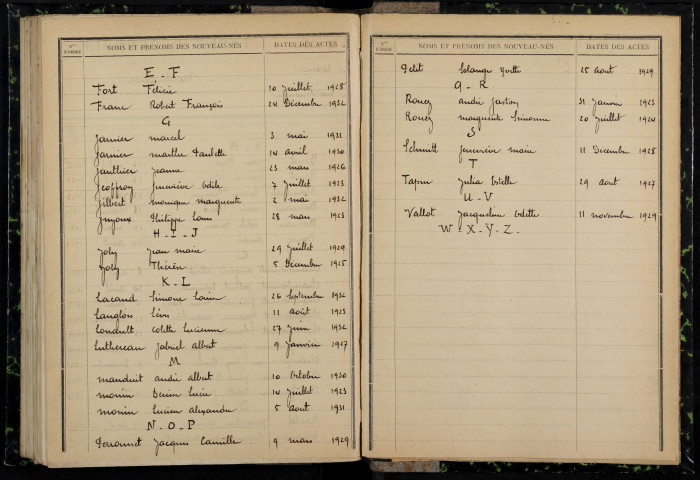 Nos D'ORDRE NOMS ET PRÉNOMS DES NOUVEAU-NÉS DATES DES ACTES
E - F
Fort Félicie 10 Juillet 1928
Franc Robert François 24 Décembre 1932
G
Garnier marcel 3 mai 1931
Garnier marthe Paulette 14 avril 1930
Gauthier Jeanne 23 mars 1926
Geoffroy Geneviève Odile 7 Juillet 1923
Gilbert monique marguerite 2 mai 1932
Philippe Louis 28 mars 1923
H - I - J
Joly Jean marie 29 Juillet 1929
Joly Thérèse 5 Décembre 1925
K - L
Lacand Simone Louise 26 Septembre 1932
Langlois 11 août 1923
Colette Lucienne 27 Juin 1932
Luthereau Gabriel albert 9 Janvier 1927
M
mauduit andré albert 10 Octobre 1930
monin Lucie 14 Juillet 1923
monin Lucien alexandre 5 août 1931
N - O - P
Perronnet Jacques Camille 9 mars 1929
Nos D'ORDRE NOMS ET PRÉNOMS DES NOUVEAU-NÉS DATES DES ACTES
Petit Solange Yvette 25 août 1929
Q - R
andré Gaston 31 Janvier 1923
marguerite Simonne 20 Juillet 1924
S
Schmitt Geneviève marie 11 Décembre 1928
T
Julia Estelle 29 août 1927
U - V
Vallot Jacqueline Odette 11 novembre 1929
W - X - Y - Z -